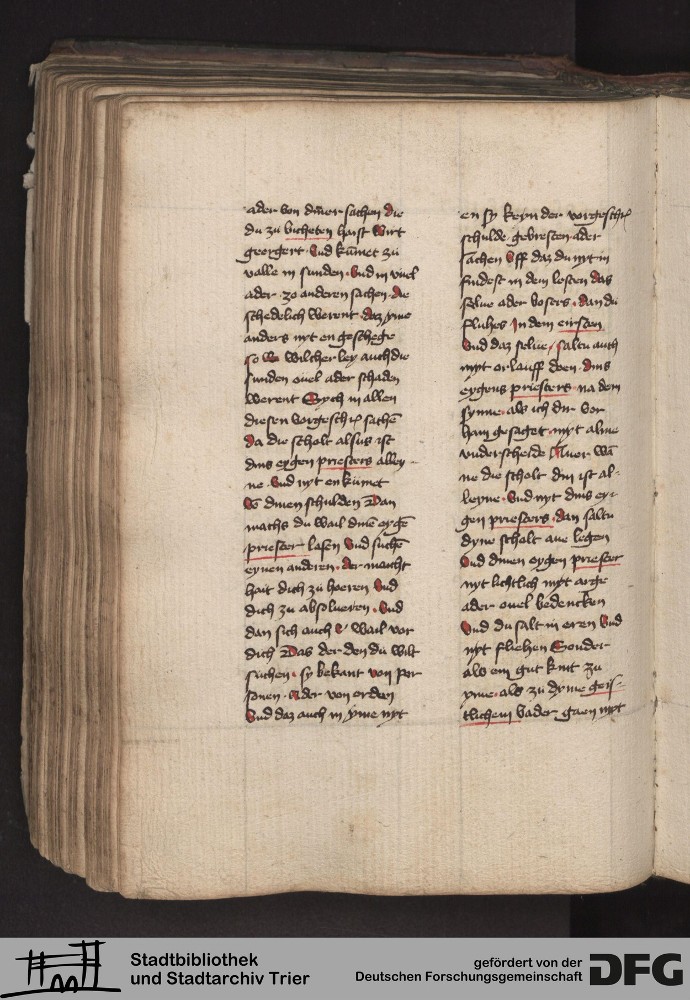 ader von diner sachen die
du zu bichten haist wirt
georgert. Vnd kumet zu
valle in sunden. Vnd in vuel
ader zo anderen sachen. die
schedelich werent. daz yme
anders nyt en geschege
so wilcher ley auch die
sunden ouel ader schaden
werent Sych in allen
diesen vorgeschr. sachē
da die scholt alsus ist
dins eygen priesters alley
ne. Vnd nyt en kumet
vō dinen schulden Dan
machs du wail dinē eygē
priester laſsen Vnd suchē
eynen anderen. der maicht
hait dich zu hoeren Vnd
dich zu absolueren. Vnd
dan sich auch wail vor
dich Das der den du wilt
suchen. sy bekant von per
sonen. Ader von orden
Vnd daz auch in yme nyt
en sy keyn der vorgeschr.
schulde gebresten ader
sachen Vff daz du nyt in
findest in dem lesten das
selue ader bosers. dan du
fluhes In dem eirsten
Vnd daz selue, saltu auch
nyt orlauff doen. dins
eygens priesters na dem
synne. als ich dir vor
hain gesaget. nyt aline
vnderscheide wā
ne die scholt din ist al-
leyne. Vnd nyt dins ey-
gen priesters. dan saltu
dyne scholt ane legen
Vnd dinen eygen priester
nyt lichtlich nyt arge
ader ouel bedencken
Vnd du salt in eren Vnd
nyt fliehen Sonder
als ein gut kint zu
yme. als zu dyme geis-
tlichem vader gaen nyt
Stadtbibliothek
und Stadtarchiv Trier
gefördert von der
Deutschen Forschungsgemeinschaft
DFG